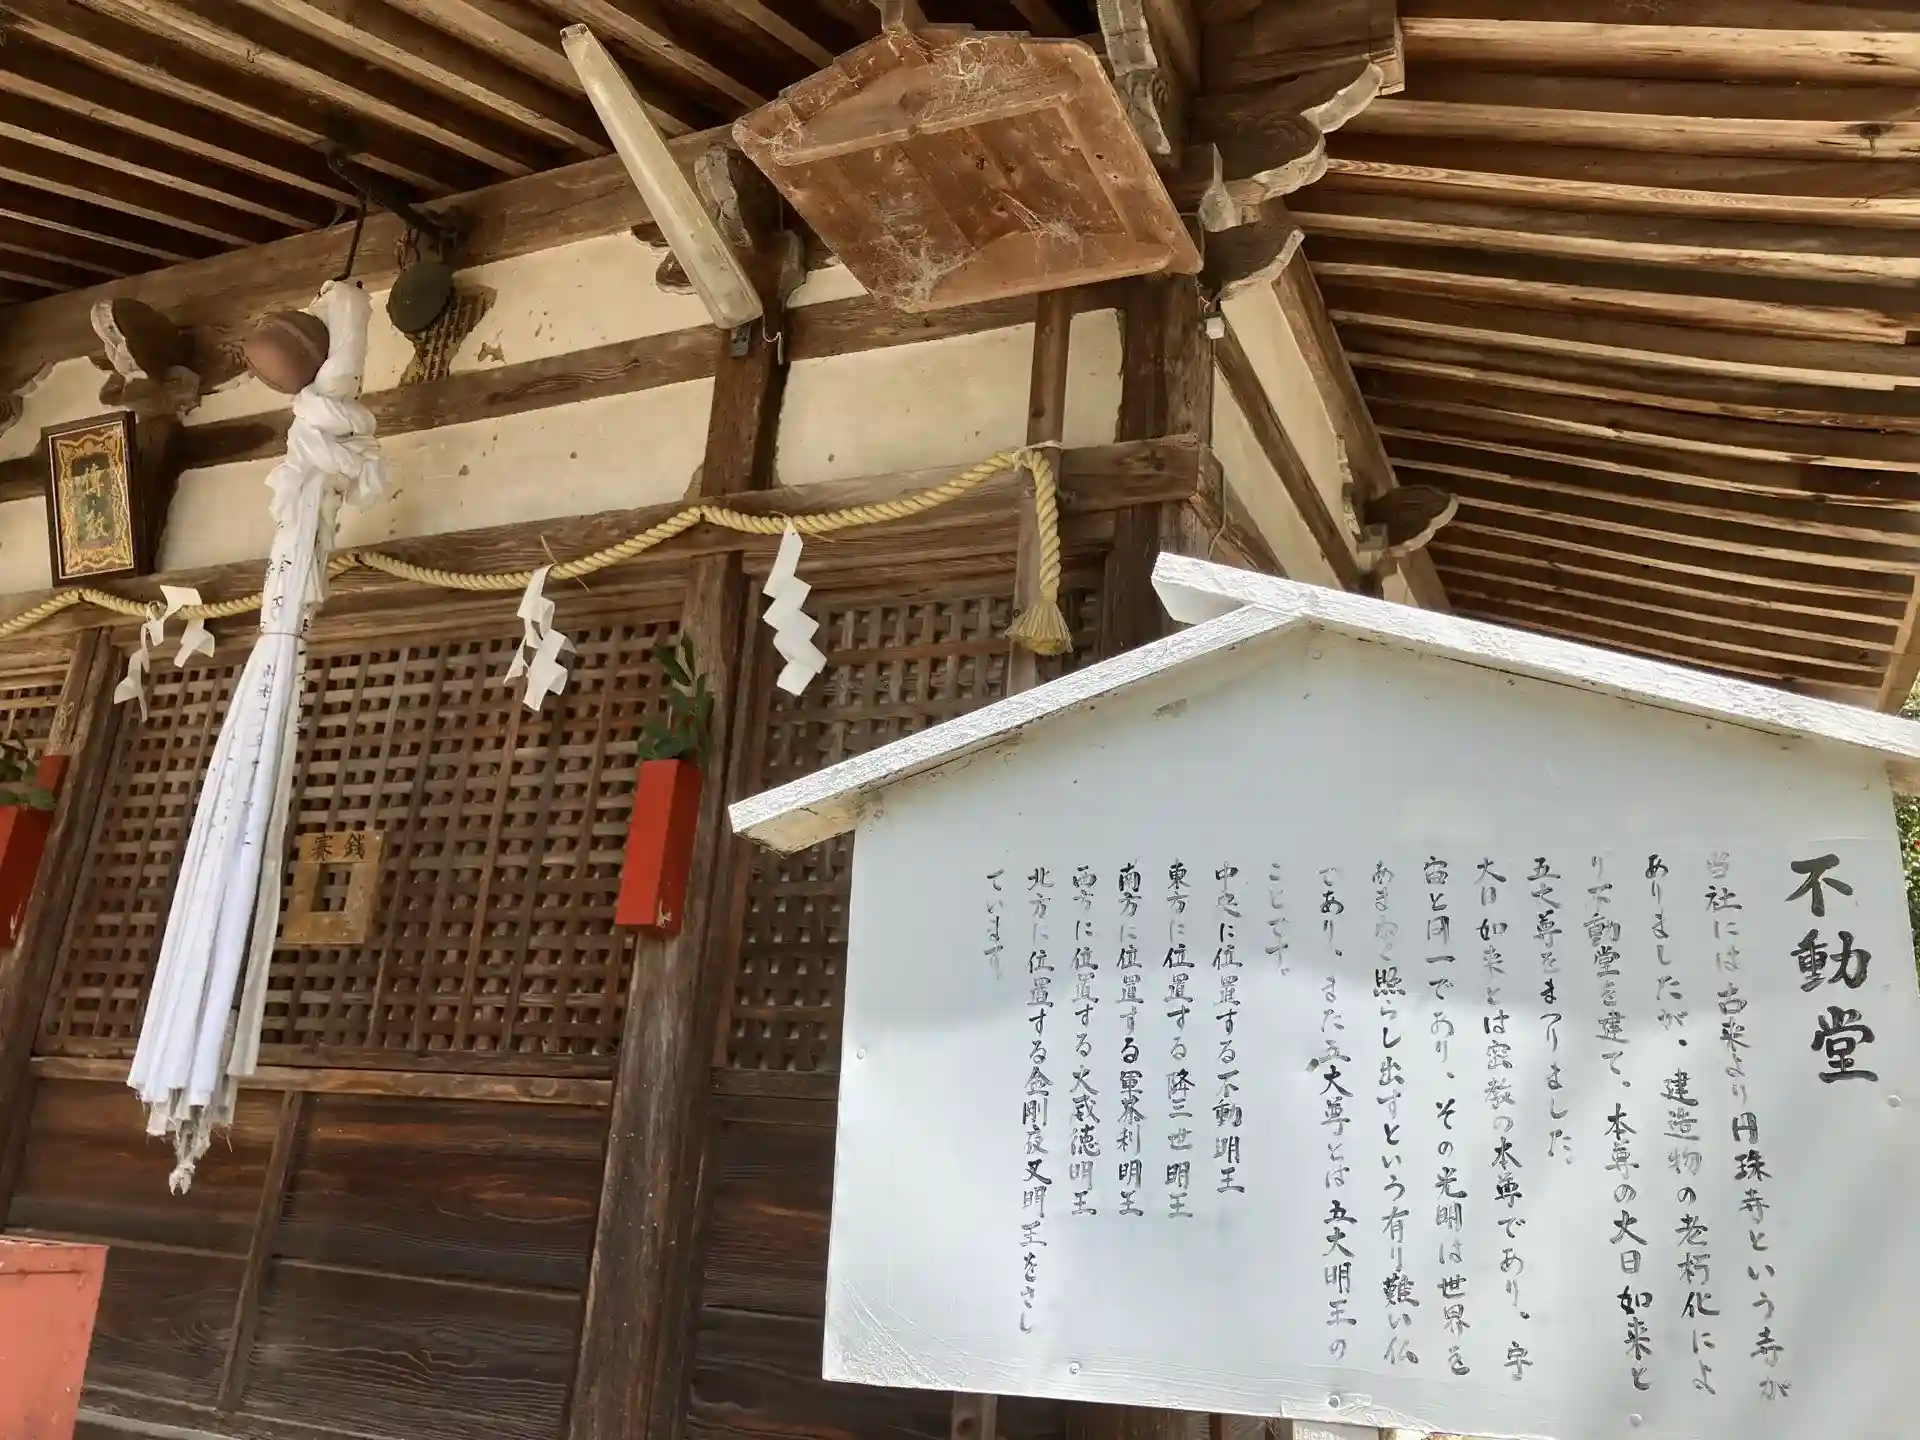 不動堂
当社には古来より円珠寺という寺が
ありましたが、建造物の老朽化によ
り不動堂を建て、本尊の大日如来と
五大尊をまつりました。
大日如来とは密教の本尊であり、宇
宙と同一であり、その光明は世界を
あまねく照らし出すという有り難い仏
であり、また五大尊とは五大明王の
ことです。
中央に位置する不動明王
東方に位置する降三世明王
南方に位置する軍荼利明王
西方に位置する大威徳明王
北方に位置する金剛夜叉明王をさし
ています。
賽銭